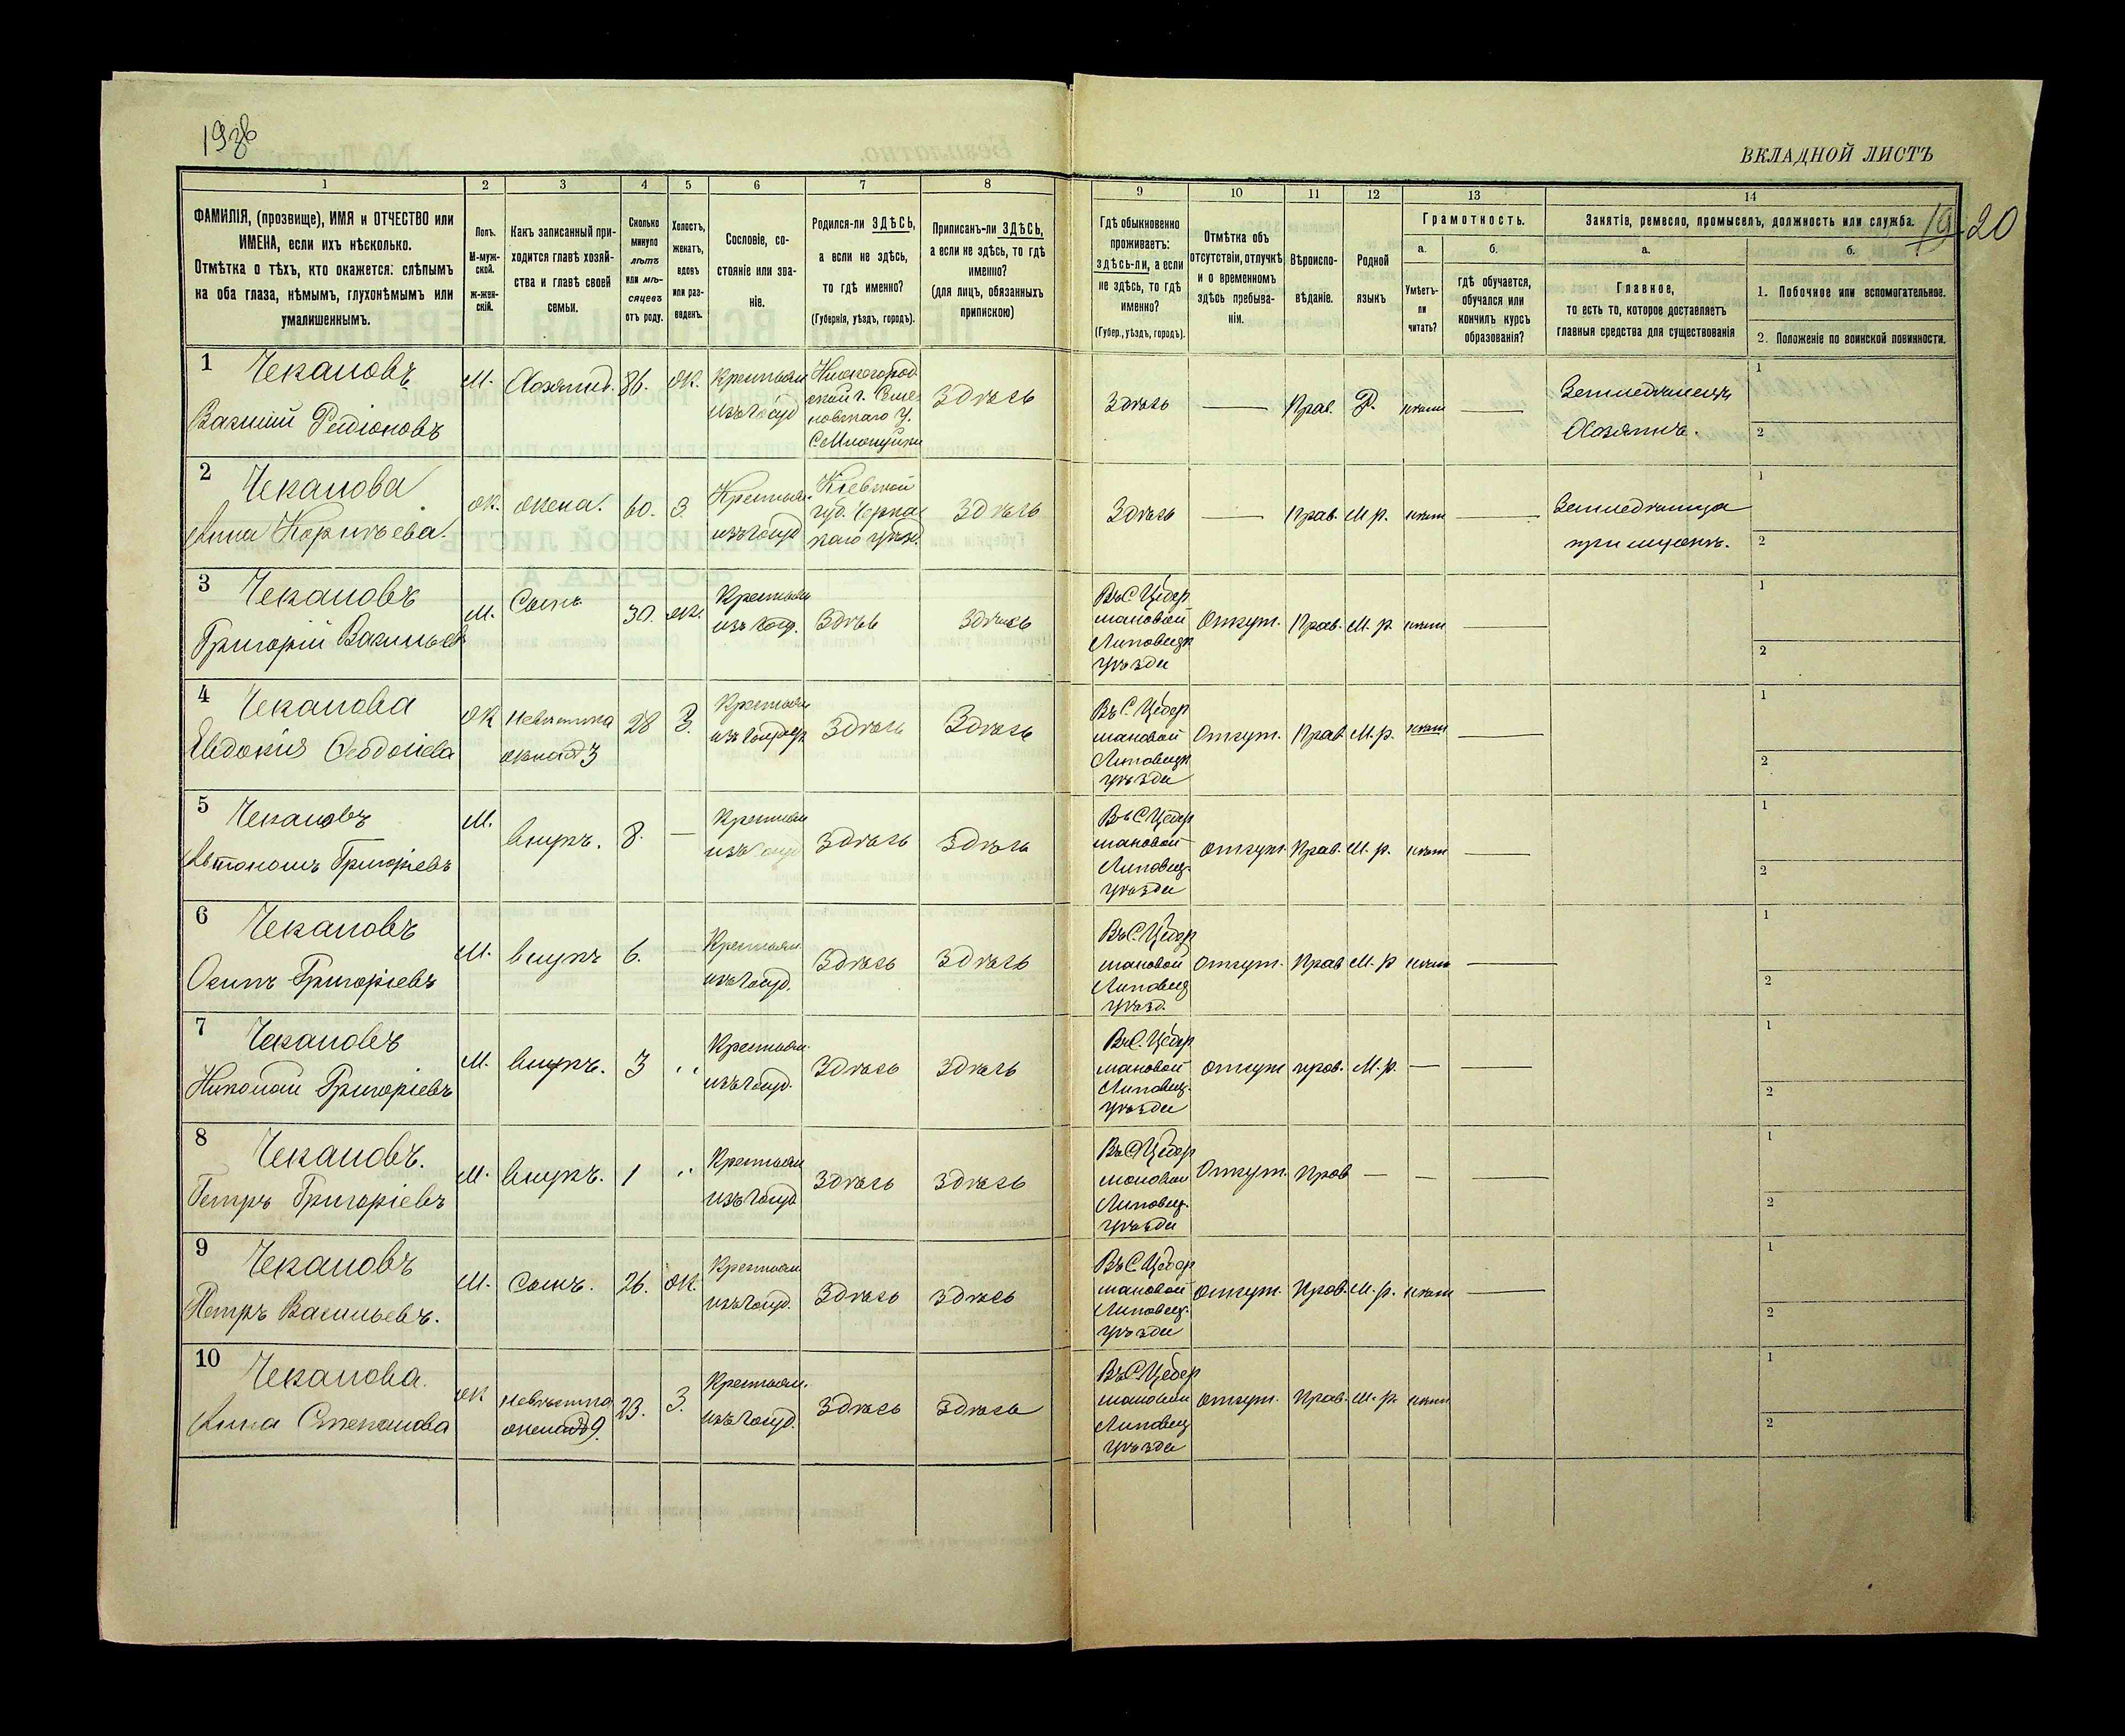 193б
ВКЛАДНОЙ ЛИСТЪ
19 20
1 2 3 4 5 6 7 8 9 10 11 12 13 14
ФАМИЛІЯ, (прозвище), ИМЯ и ОТЧЕСТВО или
ИМЕНА, если ихъ нѣсколько.
Отмѣтка о тѣхъ, кто окажется: слѣпымъ
на оба глаза, нѣмымъ, глухонѣмымъ или
умалишеннымъ.
Полъ.
М-муж-
ской.
Ж-жен-
скій.
Какъ записанный при-
ходится главѣ хозяй-
ства и главѣ своей
семьи.
Сколько
минуло
лѣтъ
или мѣ-
сяцевъ
отъ роду.
Холостъ,
женатъ,
вдовъ
или раз-
веденъ.
Сословіе, со-
стояніе или зва-
ніе.
Родился-ли ЗДѢСЬ,
а если не здѣсь,
то гдѣ именно?
(Губернія, уѣздъ, городъ).
Приписанъ-ли ЗДѢСЬ,
а если не здѣсь, то гдѣ
именно?
(для лицъ, обязанныхъ
припискою)
Гдѣ обыкновенно
проживаетъ:
здѣсь-ли, а если
не здѣсь, то гдѣ
именно?
(Губер., уѣздъ, городъ).
Отмѣтка объ
отсутствіи, отлучкѣ
и о временномъ
здѣсь пребыва-
ніи.
Вѣроиспо-
вѣданіе.
Родной
языкъ
Грамотность.
а.
Умѣетъ-
ли
читать?
б.
гдѣ обучается,
обучался или
кончилъ курсъ
образованія?
Занятіе, ремесло, промыселъ, должность или служба.
а.
Главное,
то есть то, которое доставляетъ
главныя средства для существованія
б.
1. Побочное или вспомогательное.
2. Положеніе по воинской повинности.
1 Чекановъ
Василий Родіоновъ
М. Хозяинъ. 86. Ж. Крестьян
изъ Госуд
Нижегород
ской г.
С.
Здѣсь Здѣсь — Прав. Р. нѣтъ —
Земледѣлецъ
Хозяинъ.
1
2
2 Чекалова
Анна
Ж. Жена. 60. З. Крестьян.
изъ Госуд
Кіевской
губ.
Здѣсь Здѣсь — Прав. М.р. нѣтъ —
Земледѣлица
при мужѣ.
1
2
3 Чекановъ
Григорій Васильев
М. Сынъ 30. Ж. Крестьян
изъ Госуд.
Здѣсь Здѣсь
Въ С. Цебер
мановой
Липовецк
уѣзда
Отсут. Прав. М. р. нѣтъ —
1
2
4 Чеканова
Евдокія Феодосіева
Ж Невѣстка
жена №3
28 З. Крестьян
изъ Госуд
Здѣсь Здѣсь
Въ С. Цебер
мановой
Липовецк
уѣзда
Отсут. Прав М.р. нѣтъ —
1
2
5 Чекановъ
Автономъ Григоріевъ
М. Внукъ. 8. — Крестьян
изъ Госуд
Здѣсь Здѣсь
Въ С Цебер
мановой
Липовец.
уѣзда
Отсут. Прав. М. р. нѣт —
1
2
6 Чекановъ
Осипъ Григоріевъ
М. Внукъ 6. — Крестьян.
изъ Госуд.
Здѣсь Здѣсь
Въ С. Цебер
мановой
Липовец
уѣзд.
Отсут. Прав М. р нѣтъ —
1
2
7 Чекановъ
Николай Григоріевъ
М. Внукъ. 3 " Крестьян.
изъ Госуд.
Здѣсь Здѣсь
Въ С. Цебер
мановой
Липовец.
уѣзда
Отсут прав. М. р. — —
1
2
8 Чекановъ.
Петръ Григоріевъ
М. Внукъ. 1 " Крестьян
изъ Госуд
Здѣсь Здѣсь
Въ С Цебер
мановой
Липовец.
уѣзда
Отсут. Прав — — —
1
2
9 Чекановъ
Петръ Васильевъ.
М. Сынъ. 26. Ж. Крестьян
изъ Госуд.
Здѣсь Здѣсь
Въ С Цебер
мановой
Липовец.
уѣзда
Отсут. Прав. М. р. нѣтъ —
1
2
10 Чеканова.
Анна Степанова
Ж Невѣстка
жена №9.
23. З. Крестьян.
изъ Госуд.
Здѣсь Здѣсь
Въ С Цебер
мановой
Липовец
уѣзда
Отсут. Прав. М. р. нѣтъ
1
2